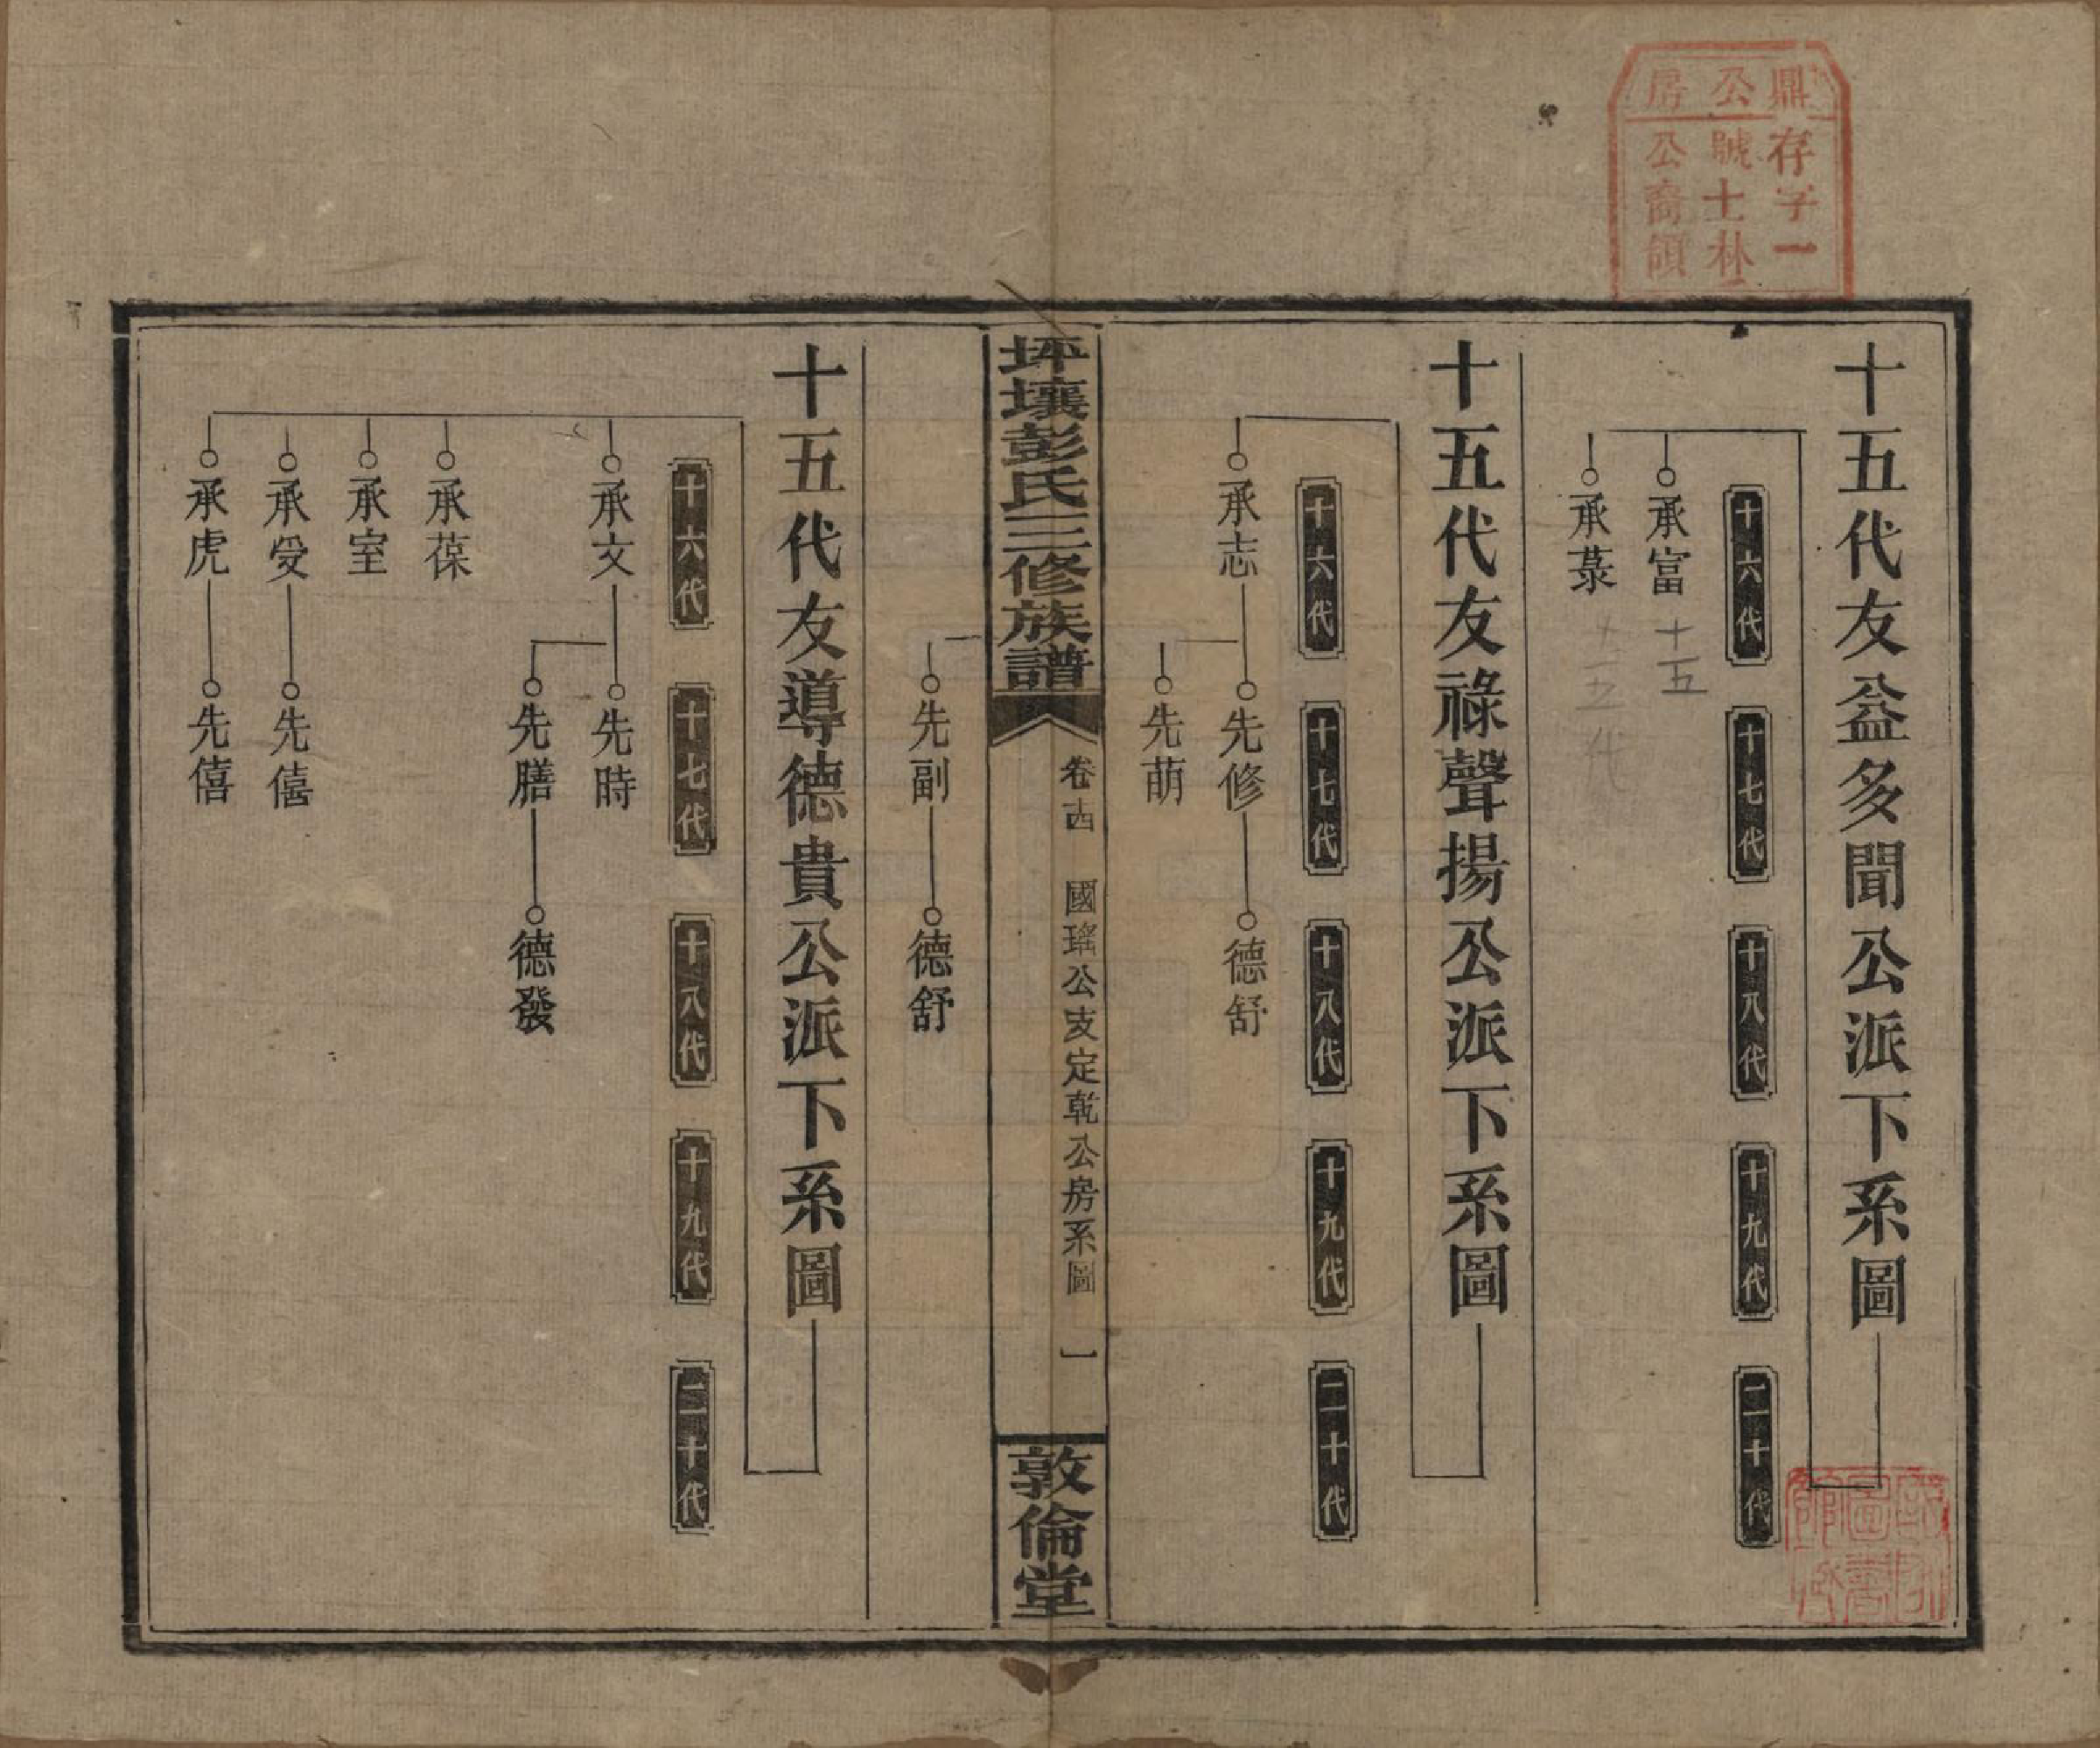 鼎公房
存字一
號士朴
公裔領
十五代友益多聞公派下系圖
十六代
十七代
十八代
十九代
二十代
承富
十五
承菉
十五代
十五代友祿聲揚公派下系圖
十六代
十七代
十八代
十九代
二十代
承志
先修
德舒
先萌
坪壤彭氏三修族譜
卷十四
國瑤公支定乾公房系圖
一
敦倫堂
先副
德舒
十五代友導德貴公派下系圖
十六代
十七代
十八代
十九代
二十代
承文
先時
先膳
德發
承葆
承室
承受
先僖
承虎
先僖